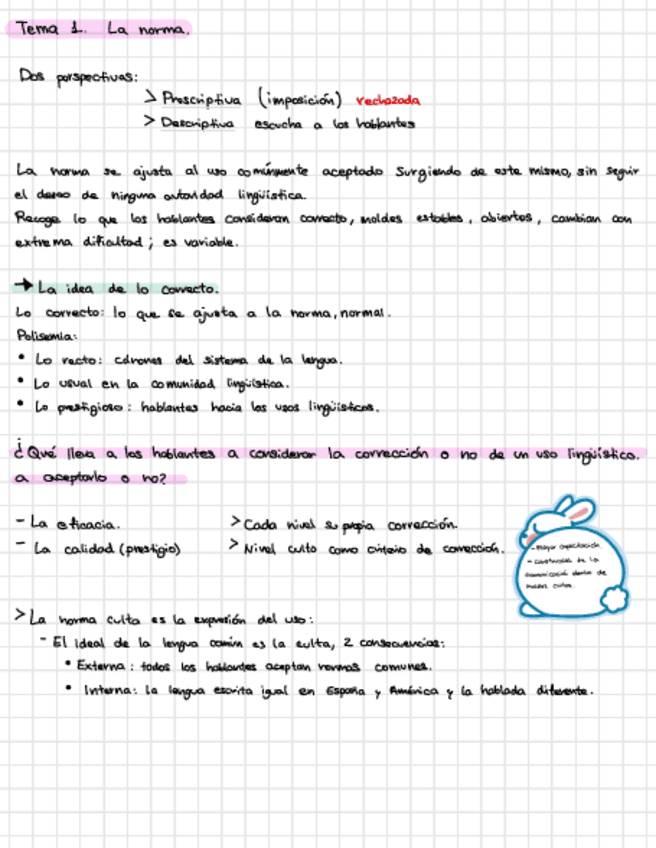 Tema 1. La norma.
Dos perspectivas:
> Prescriptiva (imposición) rechazada
> Descriptiva escucha a los hablantes
La norma se ajusta al uso comúnmente aceptado surgiendo de este mismo, sin seguir
el deseo de ninguna autoridad lingüística.
Recoge lo que los hablantes consideran correcto, moldes estables, abiertos, cambian con
extrema dificultad; es variable.
→ La idea de lo correcto.
Lo correcto: lo que se ajusta a la norma, normal.
Polisemia:
• Lo recto: cánones del sistema de la lengua.
• Lo usual en la comunidad lingüística.
• Lo prestigioso: hablantes hacia los usos lingüísticos.
¿Qué lleva a los hablantes a considerar la corrección o no de un uso lingüístico.
a aceptarlo o no?
- La eficacia.
> Cada nivel su propia corrección.
- La calidad (prestigio)
> Nivel culto como criterio de corrección.
- Mayor capacitación
- de la
comunicación dentro de
moldes cultos.
> La norma culta es la expresión del uso:
- El ideal de la lengua común es la culta, 2 consecuencias:
• Externa: todos los hablantes aceptan normas comunes.
• Interna: la lengua escrita igual en España y América y la hablada diferente.